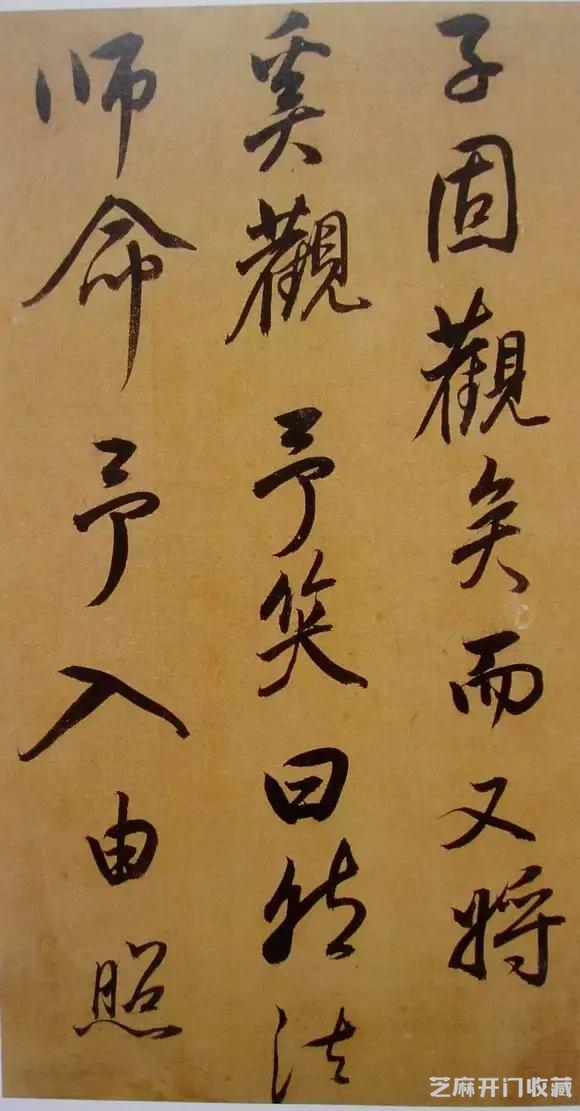 子固觀矣而又將
奚觀予笑曰然法
师命予入由照
芝麻开门收藏